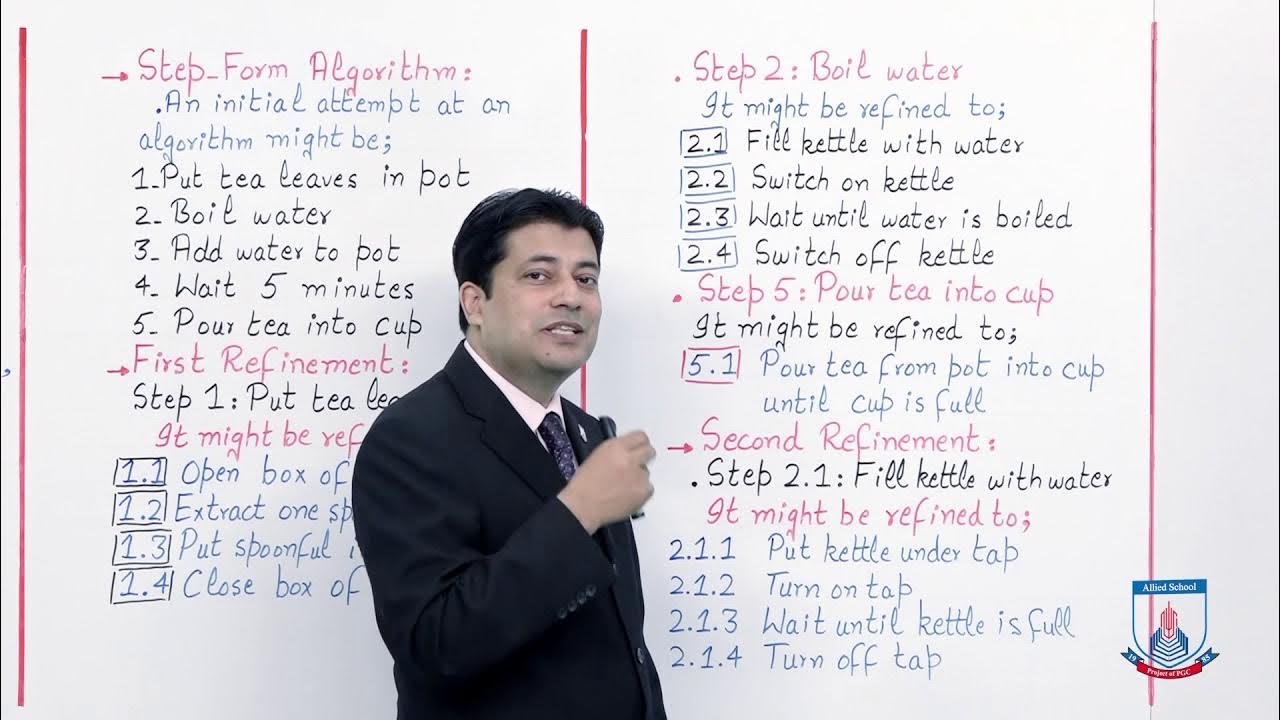 → Step-Form Algorithm:
.An initial attempt at an
algorithm might be;
1_Put tea leaves in pot
2_ Boil water
3_ Add water to pot
4_ Wait 5 minutes
5_ Pour tea into cup
→ First Refinement:
Step 1: Put tea
It might be
1.1 Open box of
1.2 Extract one
1.3 Put spoonful
1.4 Close box of
. Step 2: Boil water
It might be refined to;
2.1 Fill kettle with water
2.2 Switch on kettle
2.3 Wait until water is boiled
2.4 Switch off kettle
. Step 5: Pour tea into cup
It might be refined to;
5.1 Pour tea from pot into cup
until cup is full
→ Second Refinement:
. Step 2.1: Fill kettle with water
It might be refined to;
2.1.1 Put kettle under tap
2.1.2 Turn on tap
2.1.3 Wait until kettle is full
2.1.4 Turn off tap
Allied School
1985
Project of PGC